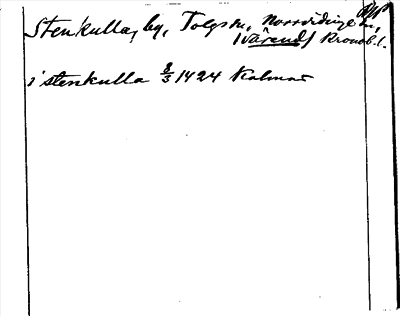 Stenkulla, by, Tolgs sn, Norrvidinge hd,
(Värend) Kronob. l.
i stenkulla 8/3 1424 Kalmar